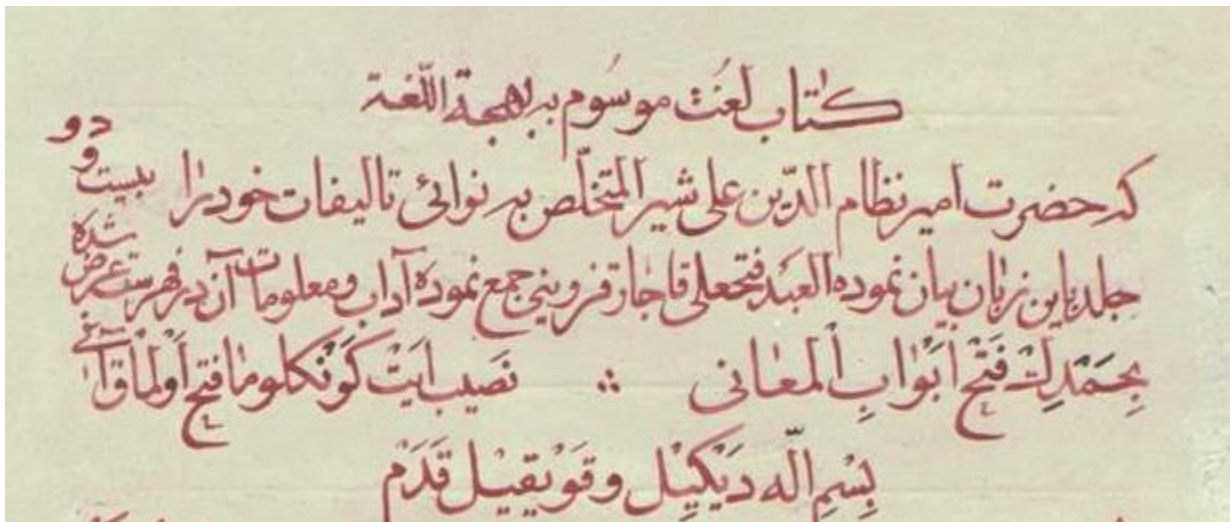 كتاب لغت موسوم به بهجة اللّغة
که حضرت امیر نظام الدّین علی شیر المتخلّص به نوائی تالیفات خود را بیست و دو
جلد باین زبان بیان نموده العبد فتحعلی قاجار قزوینی جمع نموده آداب و معلومات آن در فهرست عرض شده
بِحَمْدِكْ فَتْح اَبْوَابِ الْمعانی ∴ نَصیب ایتْ کَوْنکلوما فتح اولماق آنی
بِسْمِ الّه دَیْکیْل و قَوْیقیْل قَدَم